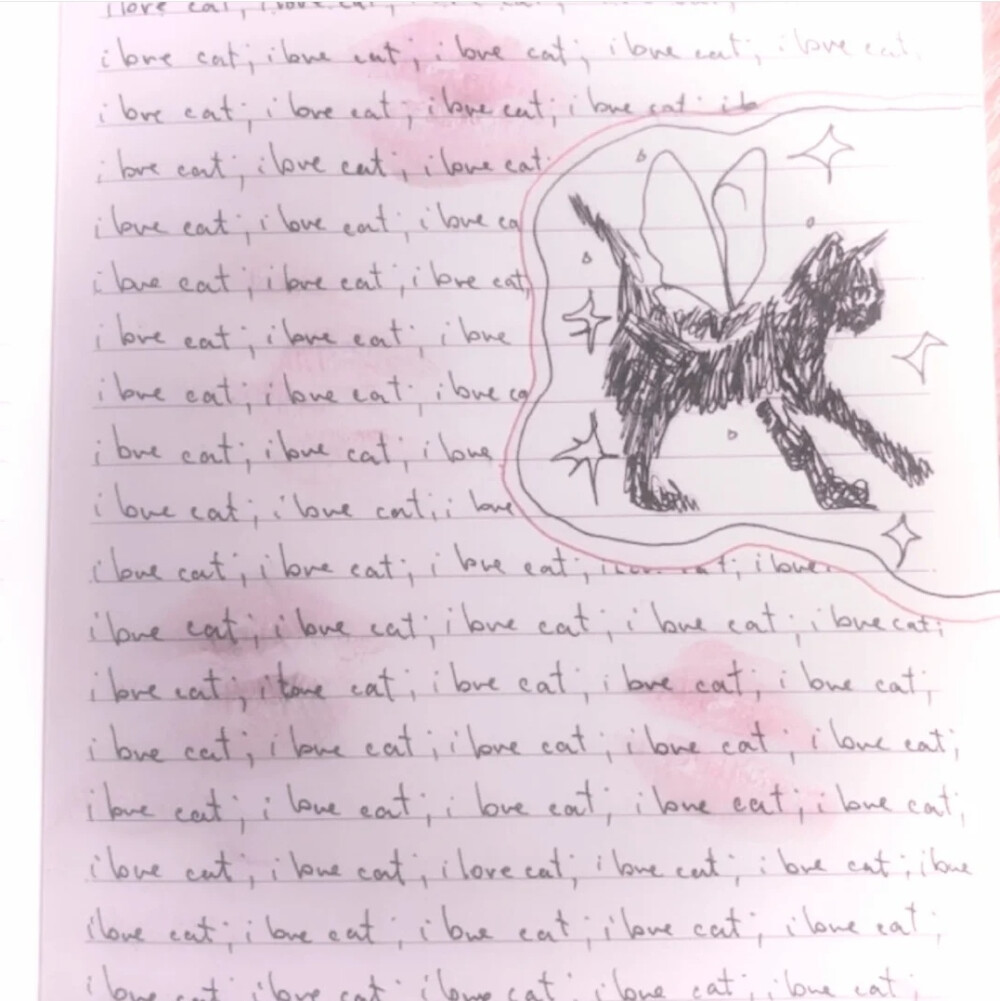 i love cat; i love cat; i love cat; i love cat;
i love cat; i love cat; i love cat; i love cat; i love cat.
i love cat; i love cat; i love cat; i love cat; i lo
i love cat; i love cat; i love cat;
i love cat; i love cat; i love ca
i love cat; i love cat; i love cat
i love cat; i love cat; i love
i love cat; i love cat; i love ca
i love cat; i love cat; i love
i love cat; i love cat; i love
i love cat; i love cat; i love cat; i love
i love cat; i love cat; i love cat; i love cat; i love cat;
i love cat; i love cat; i love cat; i love cat; i love cat;
i love cat; i love cat; i love cat; i love cat; i love cat;
i love cat; i love cat; i love cat; i love cat; i love cat;
i love cat; i love cat; i love cat; i love cat; i love cat; i love
i love cat; i love cat; i love cat; i love cat; i love cat;
i love cat; i love cat; i love cat; i love cat; i love cat;